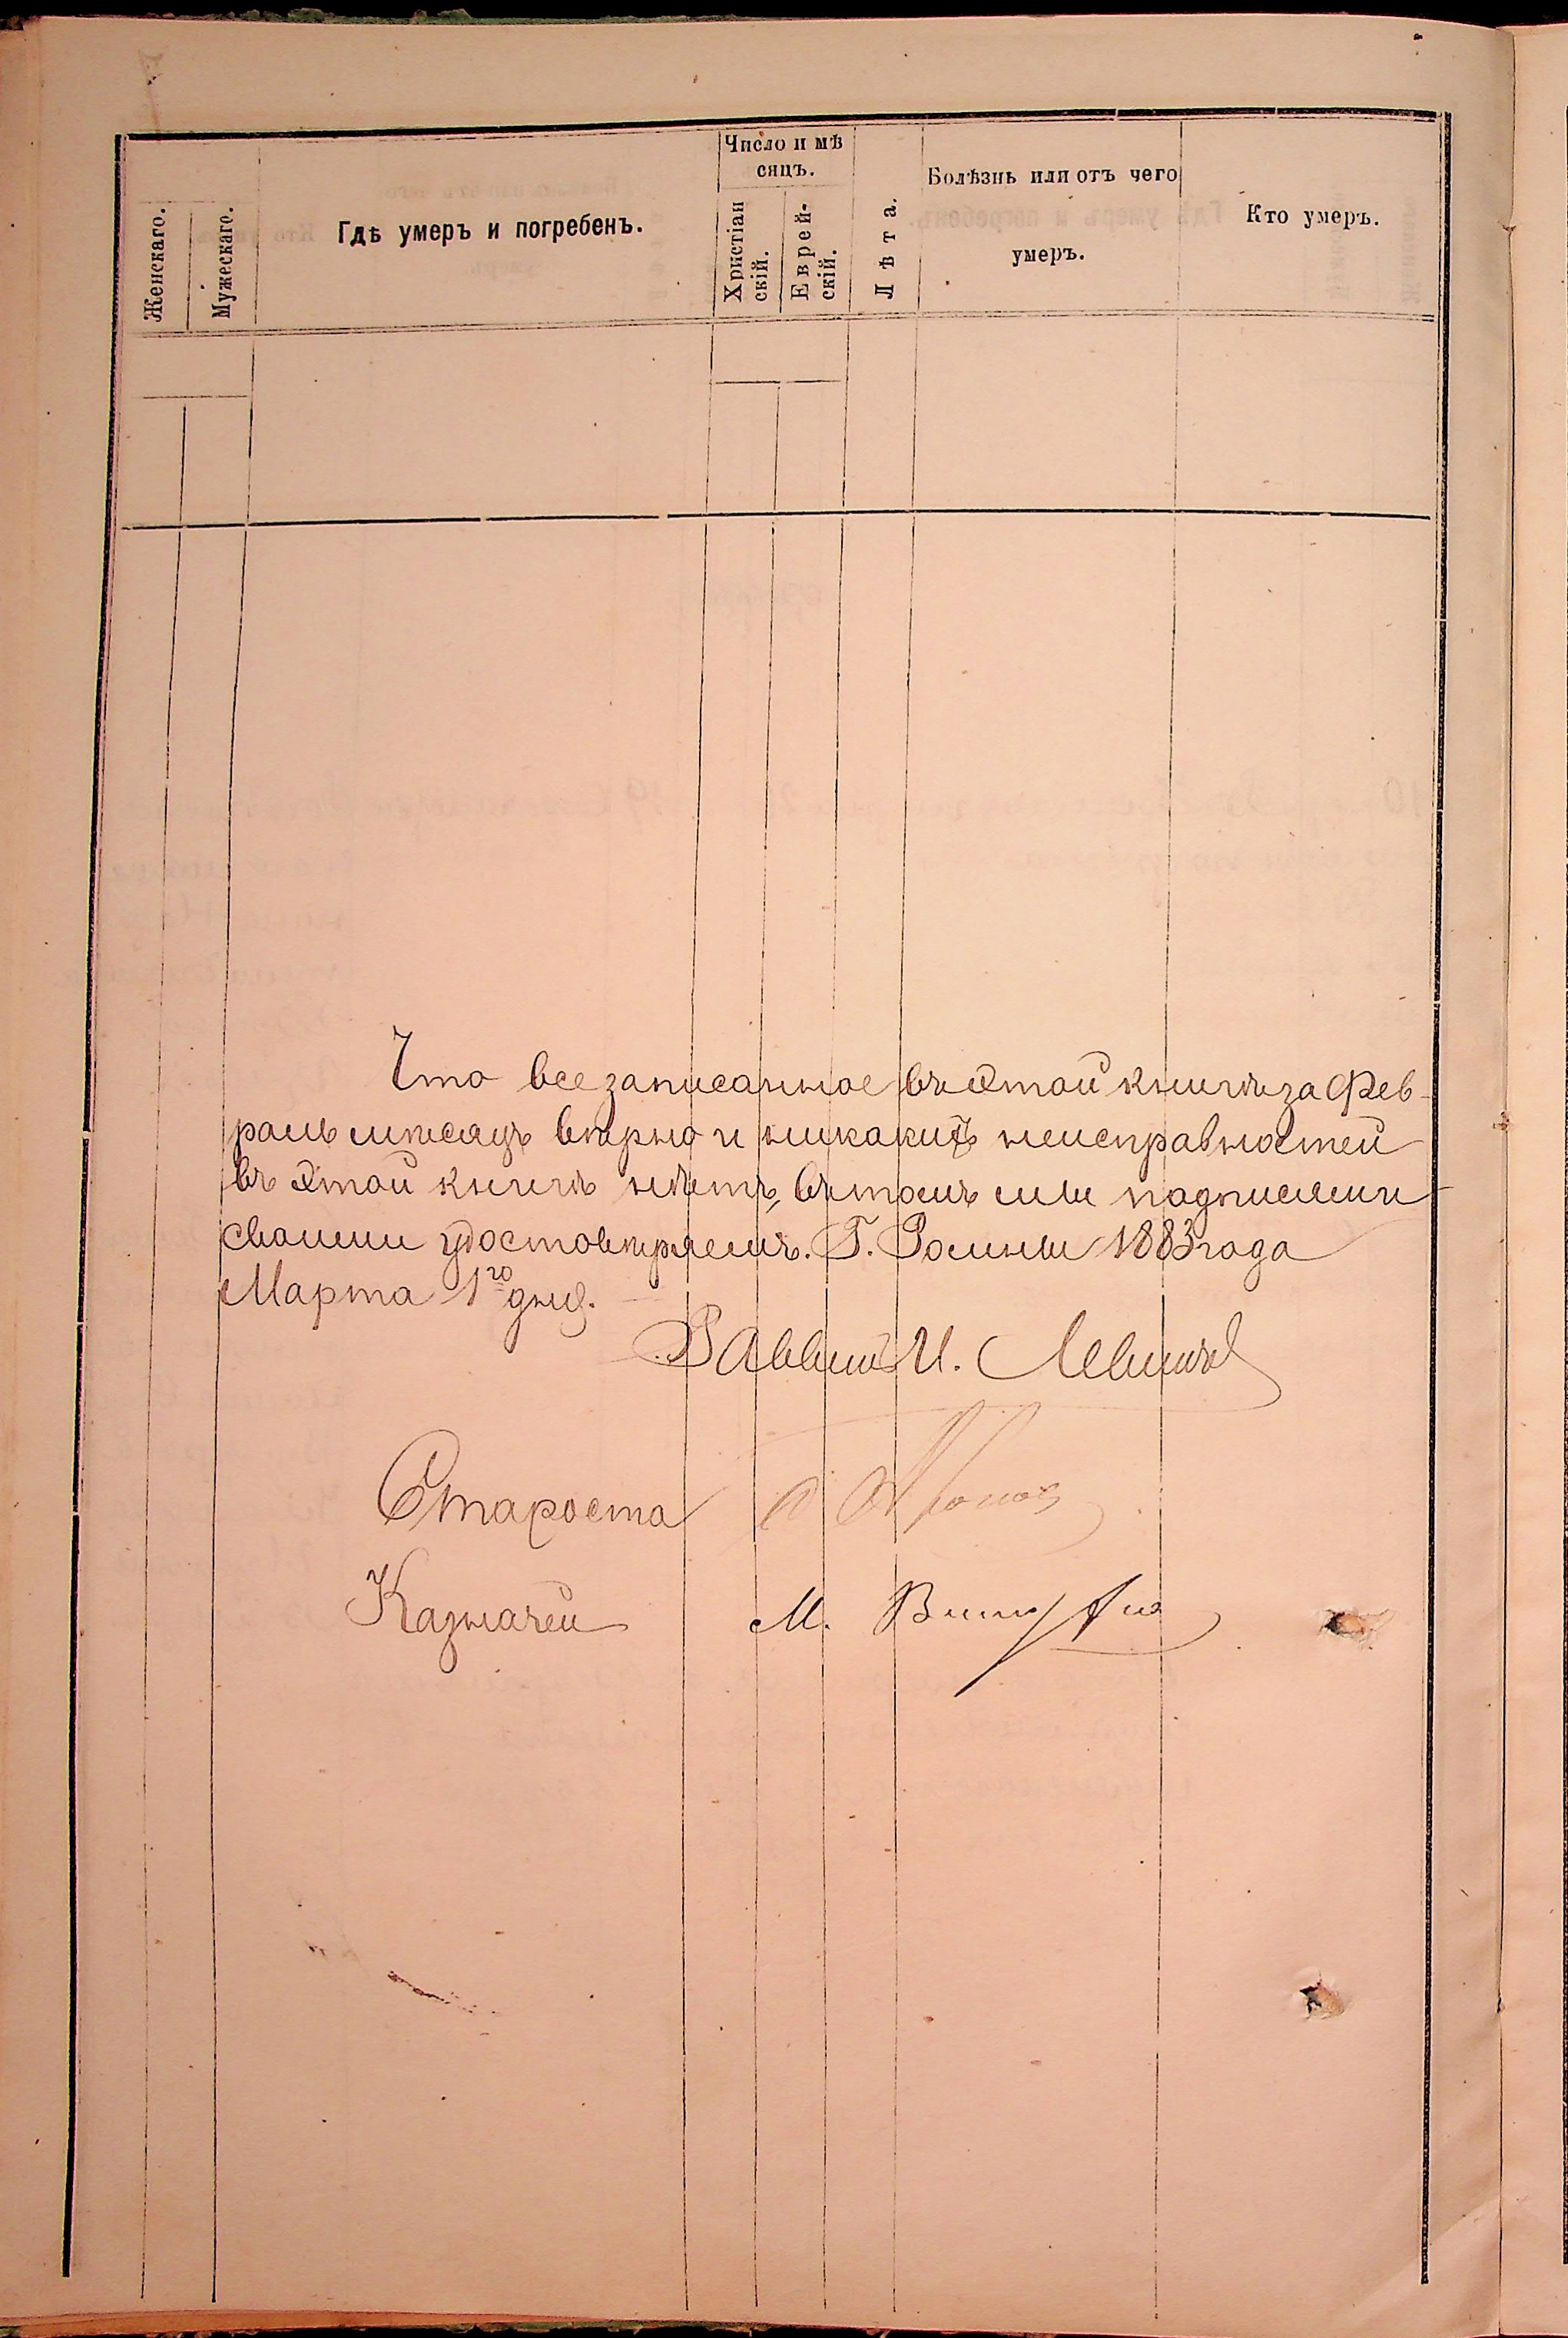 Число и мѣ
сяцъ.
Женскаго.
Мужескаго.
Гдѣ умеръ и погребенъ.
Христіан
скій.
Еврей-
скій.
Лѣта.
Болѣзнь или отъ чего
умеръ.
Кто умеръ.
Что все записанное въ этой книгѣ за Фев-
раль мѣсяцъ вѣрно и никакихъ неисправностей
въ этой книгѣ нѣтъ, въ томъ мы подписями
своими удостовѣряемъ. Г. Ромны 1883 года
Марта 1го дня.
Раввинъ И.
Староста
Казначей М.